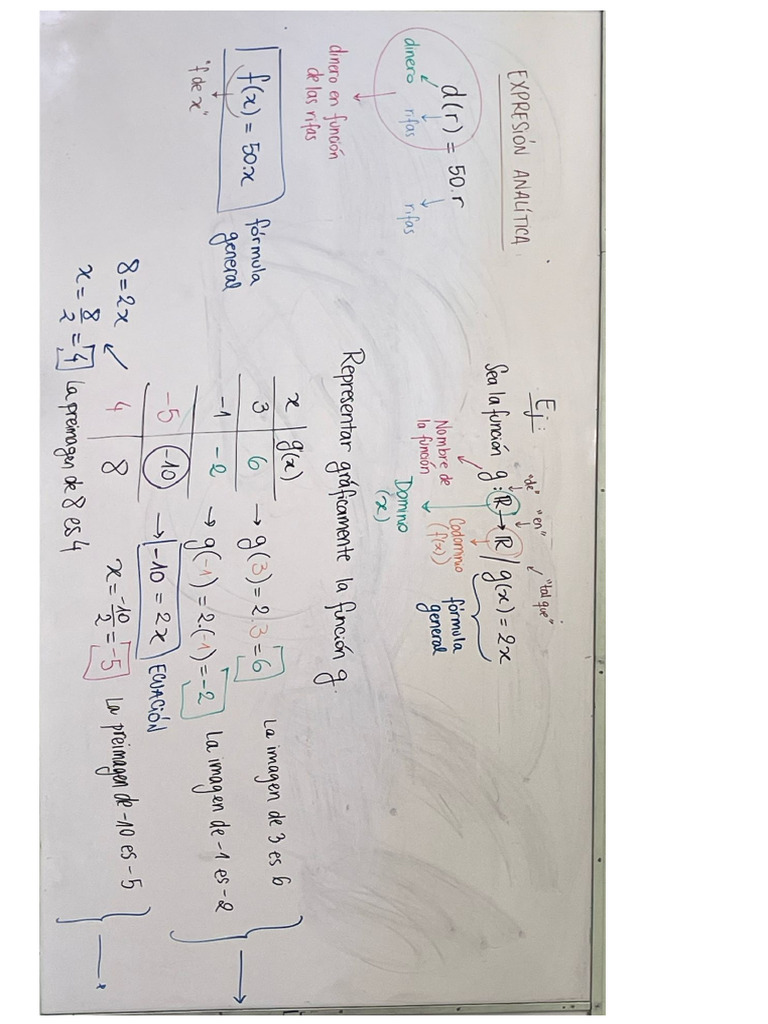 EXPRESIÓN ANALÍTICA
d(r) = 50.r
dinero rifas rifas
dinero en función
de las rifas
f(x) = 50.x
fórmula
general
"f de x"
Ej:
"de" "en" "tal que"
Sea la función g: ℝ → ℝ / g(x) = 2x
Nombre de
la función
Codominio
(f(x))
fórmula
general
Domino
(x)
Representar gráficamente la función g.
x | g(x)
3 | 6 → g(3) = 2.3 = 6 La imagen de 3 es 6
-1 | -2 → g(-1) = 2.(-1) = -2 La imagen de -1 es -2
-5 | -10 → -10 = 2x ECUACIÓN
x = -10/2 = -5 La preimagen de -10 es -5
4 | 8
8 = 2x
x = 8/2 = 4 La preimagen de 8 es 4